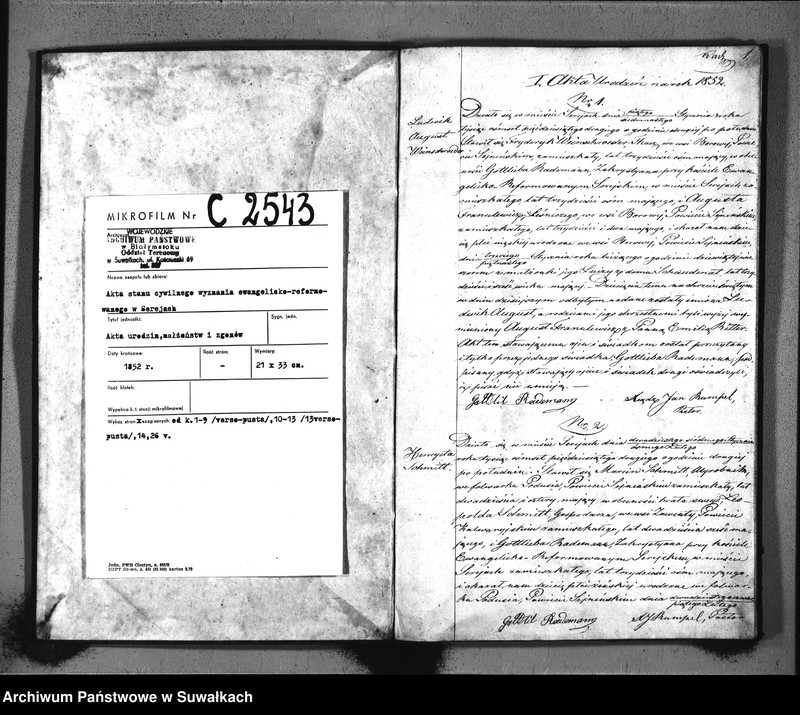 MIKROFILM Nr C 2543
Archiwum
WOJEWÓDZKIE
ARCHIWUM PAŃSTWOWE
w Białymstoku
Oddział Terenowy
w Suwałkach, ul. Kościuszki 69
Nazwa zespołu lub zbioru:
Akta stanu cywilnego wyznania ewangelicko-reformo-
wanego w Serejach
Tytuł jednostki:
Sygn. jedn.
Akta urodzin,małżeństw i zgonów
Daty krańcowe:
Ilość stron:
Wymiary:
1852 r.
-
21 x 33 cm.
Ilość klatek:
Wypełnia k. t. stacji mikrofilmowej
Wykaz stron zapisanych od k.1-9 /verso-pusta/,10-13 /13verso-
pusta/,14,26 v.
1.
I. Akta Urodzeń na rok 1852.
No 1.
Ludwik
August
Działo się w mieście Serejach dnia Stycznia roku
tysiąc ośmset pięćdziesiątego drugiego o godzinie drugiej po południu
Stawił się Frydrych we wsi Borowej, Powie-
cie Sejneńskim zamieszkały, lat trzydzieści ośm mający, w obec-
ności Gottlieba Rademann, Zakrystyana przy kościele Ewan-
gelicko-Reformowanym Serejskim, w mieście Serejach za-
mieszkałego, lat trzydzieści ośm mającego, i Augusta
we wsi Borowej, Powiecie Sejneńskim
zamieszkałego, lat trzydzieści i dwa mającego i okazał nam dzie-
cię płci męskiej urodzone we wsi Borowej, Powiecie Sejneńskim,
dnia Stycznia roku bieżącego o godzinie
z małżonki jego Luizy z domu lat trzy-
dzieści wieku mającej. Dziecięciu temu na chrzcie świętym
w dniu dzisiejszym odbytym, nadane zostały imiona Lu-
dwik August, a rodzicami jego chrzestnemi byli wyżej wy-
mieniony August i Panna Emilia Ritter.
Akt ten stawającemu, ojcu i świadkom został przeczytany
i tylko przez jednego świadka, Gottlieba Rademann, pod-
pisany, gdyż stawający ojciec i świadek drugi oświadczyli,
iż pisać nie umieją.
Gottlib Rademann
Xiądz Jan Rumpel,
Pastor.
No. 2.
Henryeta
Schmitt.
Działo się w mieście Serejach dnia
roku tysiąc ośmset pięćdziesiątego drugiego o godzinie drugiej
po południu. Stawił się Marcin Schmitt, Wyrobnik,
we folwarku Podusia, Powiecie Sejneńskim zamieszkały, lat
dwadzieścia i cztery mający, w obecności brata swego Leo-
polda Schmitt, Gospodarza, we wsi Powiecie
Kalwaryjskim zamieszkałego, lat dwadzieścia sześć ma-
jącego, i Gottlieba Rademann, Zakrystyana przy kościele
Ewangelicko-Reformowanym Serejskim, w mieście
Serejach zamieszkałego, lat trzydzieści ośm mającego
i okazał nam dziecię płci żeńskiej urodzone we folwar-
ku Podusia, Powiecie Sejneńskim dnia
Gottlib Rademann
XJ Rumpel, Pastor
Archiwum Państwowe w Suwałkach